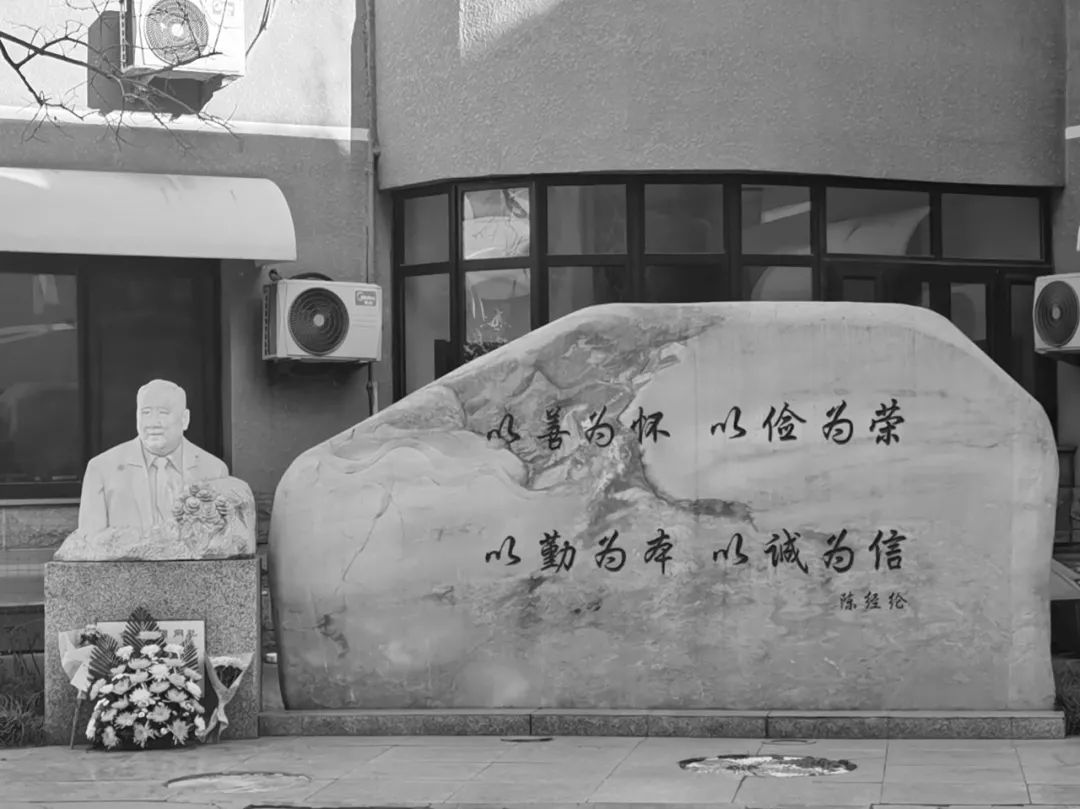 以善为怀 以俭为荣
以勤为本 以诚为信
陈经纶
Midea